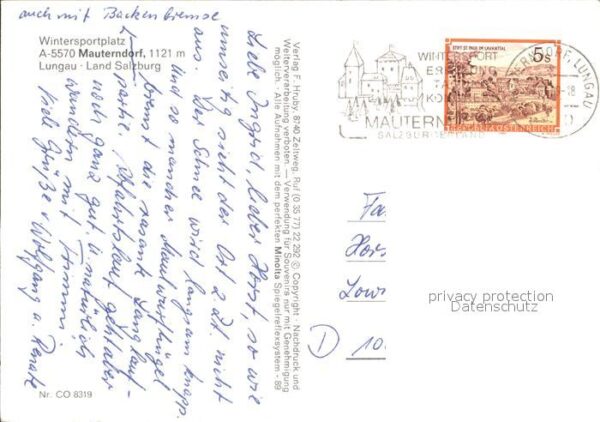 auch mit Backenbremse
Wintersportplatz
A-5570 Mauterndorf, 1121 m
Lungau · Land Salzburg
Liebe Ingrid, lieber Horst, so wie
umseitig sieht der Ort z. Zt. nicht
aus. Der Schnee wird langsam knapp
und so mancher Maulwurfshügel
bremst die rasante Langlauf-
partie. Abfahrtslauf geht aber
noch ganz gut u. natürlich
wandern mit
Viele Grüße v. Wolfgang u. Renate
Nr. CO 8319
Verlag F. Hruby, 8740 Zeltweg, Ruf (0 35 77) 22 292 © Copyright · Nachdruck und
Weiterverarbeitung verboten. — Verwendung für Souvenirs nur mit Genehmigung
möglich · Alle Aufnahmen mit dem perfekten Minolta Spiegelreflexsystem · 89
WINTERSPORT
MAUTERN
STIFT ST. PAUL IM LAVANTTAL
5s
REPUBLIK ÖSTERREICH
RNDORF, LUNGAU
Fa
Hors
Low
D 10
privacy protection
Datenschutz